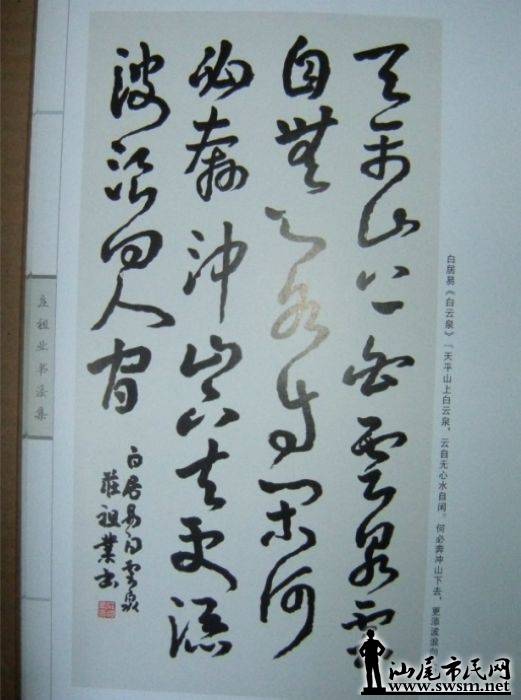 天平山上白雲泉雲
自無心水自閑何
必奔沖山下去更添
波浪向人間
白居易白雲泉
莊祖業書
白居易《白云泉》“天平山上白云泉，云自无心水自闲。何必奔冲山下去，更添波浪向
庄祖业书法集
汕尾市民网
www.swsm.net